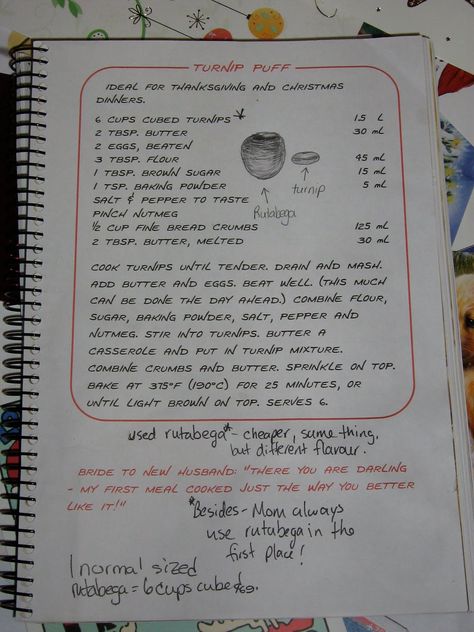 TURNIP PUFF
IDEAL FOR THANKSGIVING AND CHRISTMAS
DINNERS.
6 CUPS CUBED TURNIPS * 1.5 L
2 TBSP. BUTTER 30 mL
2 EGGS, BEATEN
3 TBSP. FLOUR 45 mL
1 TBSP. BROWN SUGAR 15 mL
1 TSP. BAKING POWDER 5 mL
SALT & PEPPER TO TASTE
PINCH NUTMEG
½ CUP FINE BREAD CRUMBS 125 mL
2 TBSP. BUTTER, MELTED 30 mL
turnip
Rutabega
COOK TURNIPS UNTIL TENDER. DRAIN AND MASH.
ADD BUTTER AND EGGS. BEAT WELL. (THIS MUCH
CAN BE DONE THE DAY AHEAD.) COMBINE FLOUR,
SUGAR, BAKING POWDER, SALT, PEPPER AND
NUTMEG. STIR INTO TURNIPS. BUTTER A
CASSEROLE AND PUT IN TURNIP MIXTURE.
COMBINE CRUMBS AND BUTTER. SPRINKLE ON TOP.
BAKE AT 375°F (190°C) FOR 25 MINUTES, OR
UNTIL LIGHT BROWN ON TOP. SERVES 6.
used rutabega* - cheaper, same thing,
but different flavour.
BRIDE TO NEW HUSBAND: "THERE YOU ARE DARLING
- MY FIRST MEAL COOKED JUST THE WAY YOU BETTER
LIKE IT!"
*Besides - Mom always
use rutabega in the
first place!
1 normal sized
rutabega = 6 cups cubed.